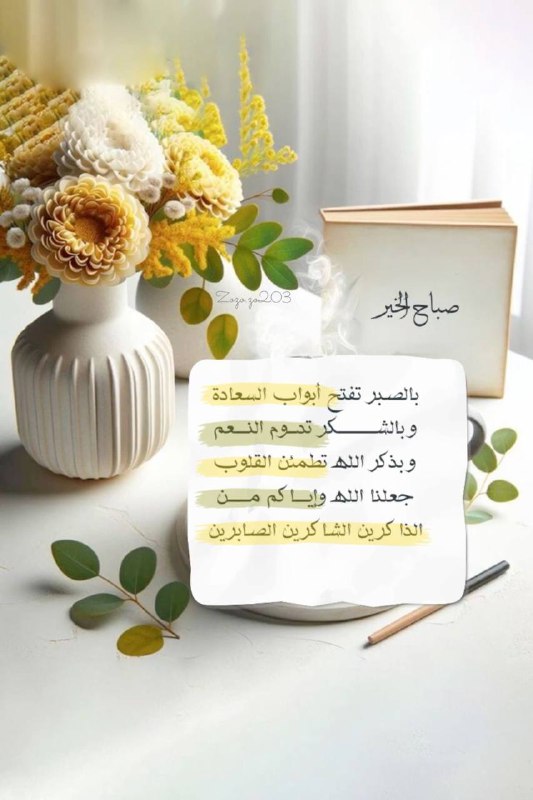 صباح الخير
Zozo.zo203
بالصبر تفتح أبواب السعادة
وبالشـــــكر تدوم النـعم
وبذكر الله تطمئن القلوب
جعلنا الله وإيـاكم مـــن
الذاكرين الشاكرين الصابرين